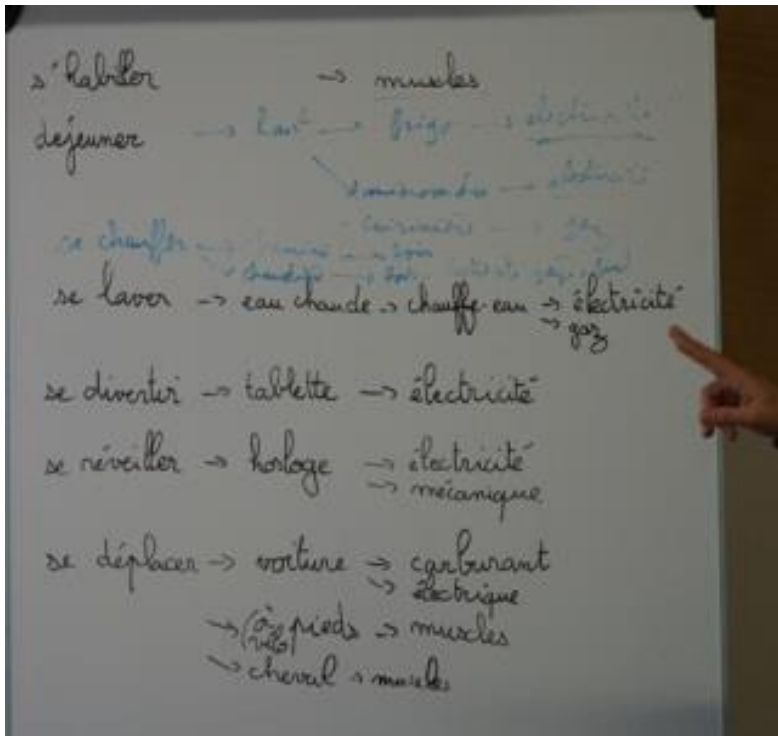 s'habiller → muscles
déjeuner → → frigo → électricité
→ électricité
→ gaz
se chauffer →
→
se laver → eau chaude → chauffe-eau → électricité
→ gaz
se divertir → tablette → électricité
se réveiller → horloge → électricité
→ mécanique
se déplacer → voiture → carburant
→ électrique
→ (à pieds → muscles
(vélo)
→ cheval → muscles